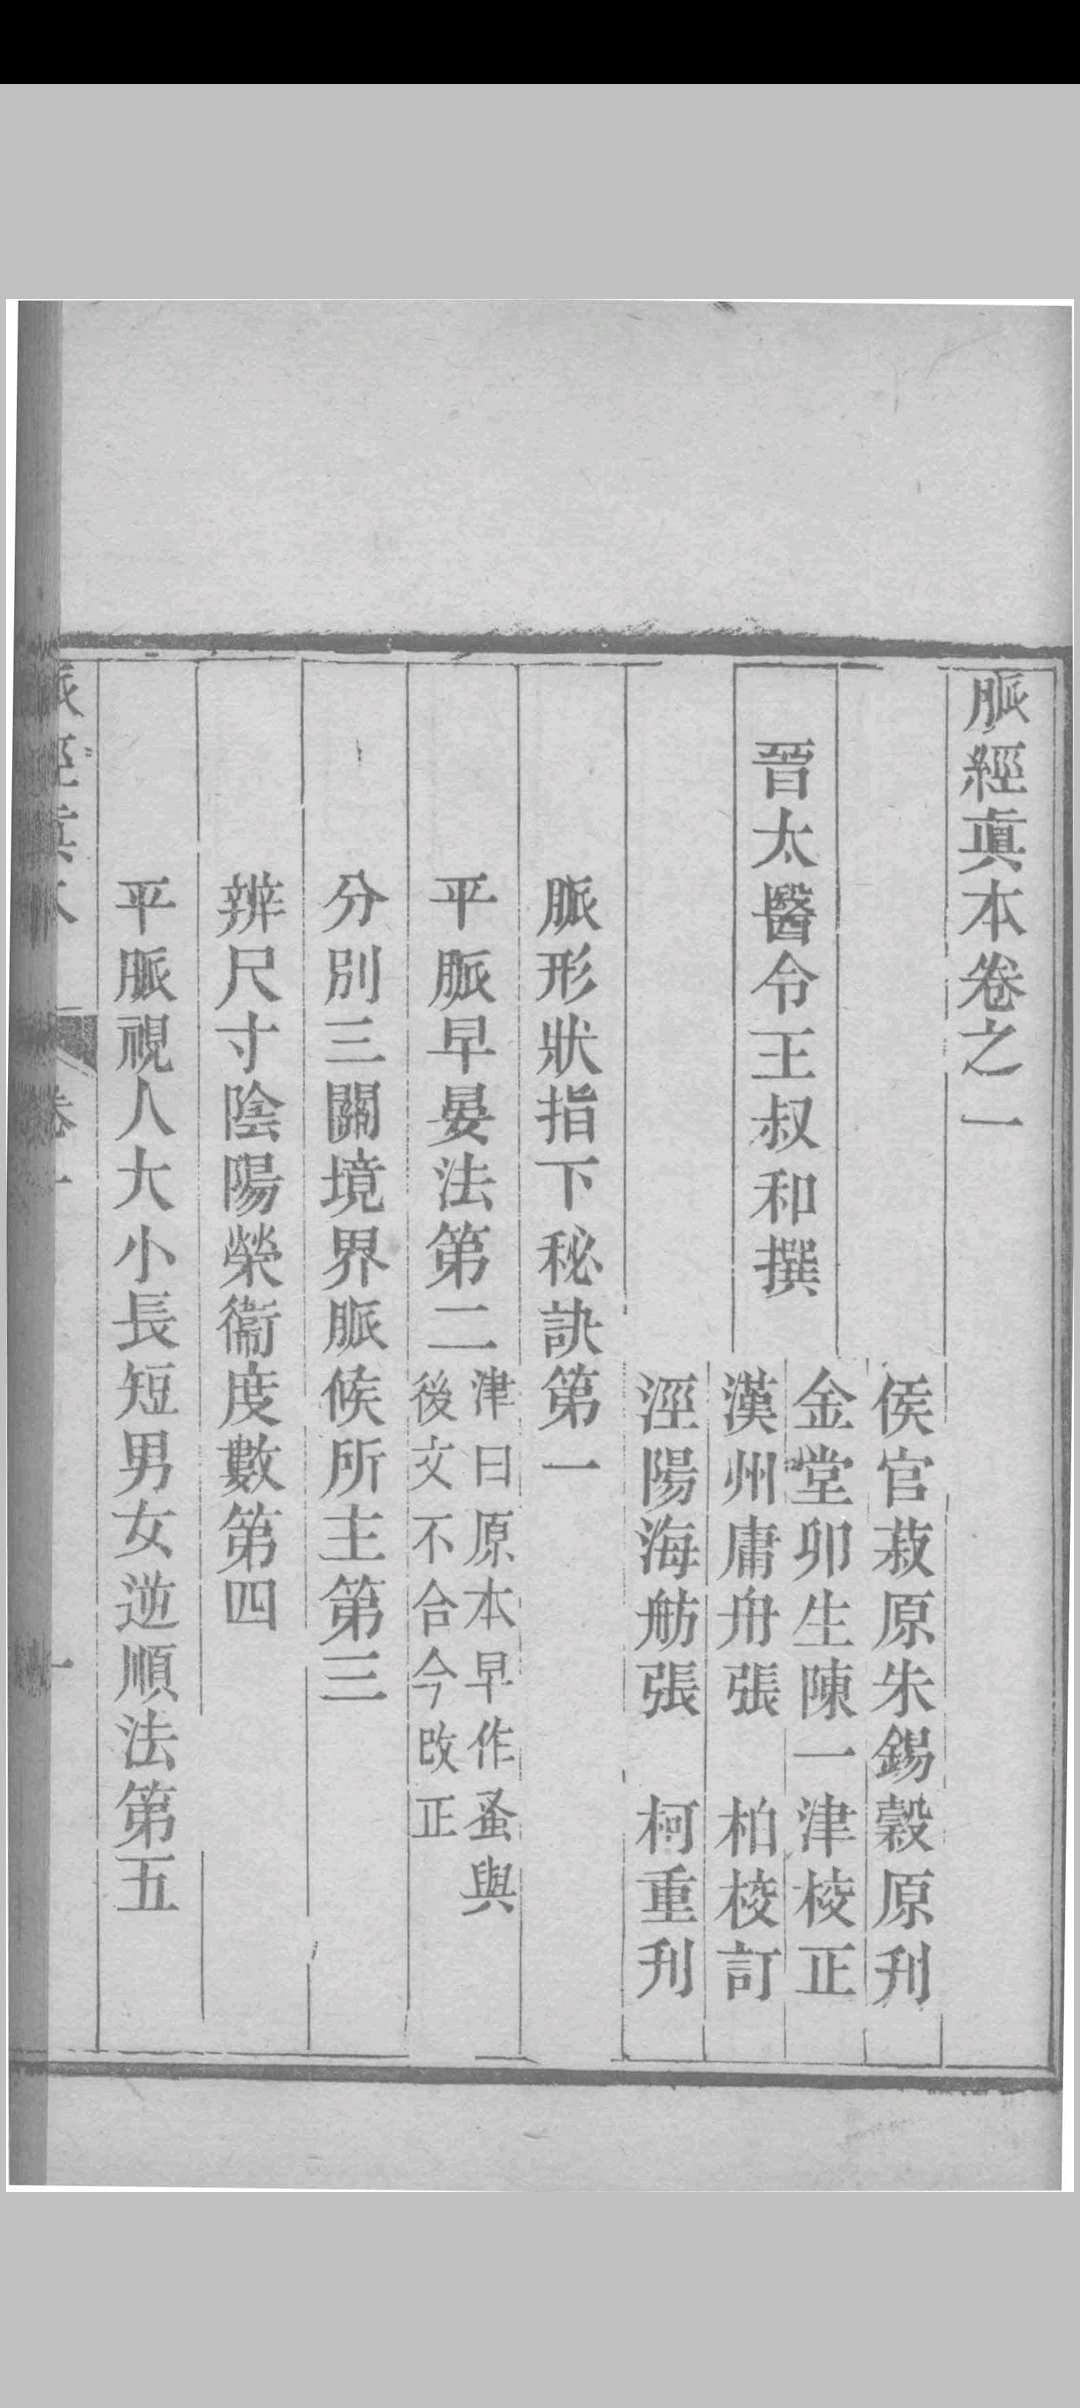 脈經眞本卷之一
侯官菽原朱錫穀原刊
金堂卯生陳一津校正
晉太醫令王叔和撰
漢州庸舟張柏校訂
涇陽海舫張柯重刊
脈形狀指下秘訣第一
平脈早晏法第二
津曰原本早作蚤與
後文不合今改正
分別三關境界脈候所主第三
辨尺寸陰陽榮衞度數第四
平脈視人大小長短男女逆順法第五
脈經眞本
卷一
一